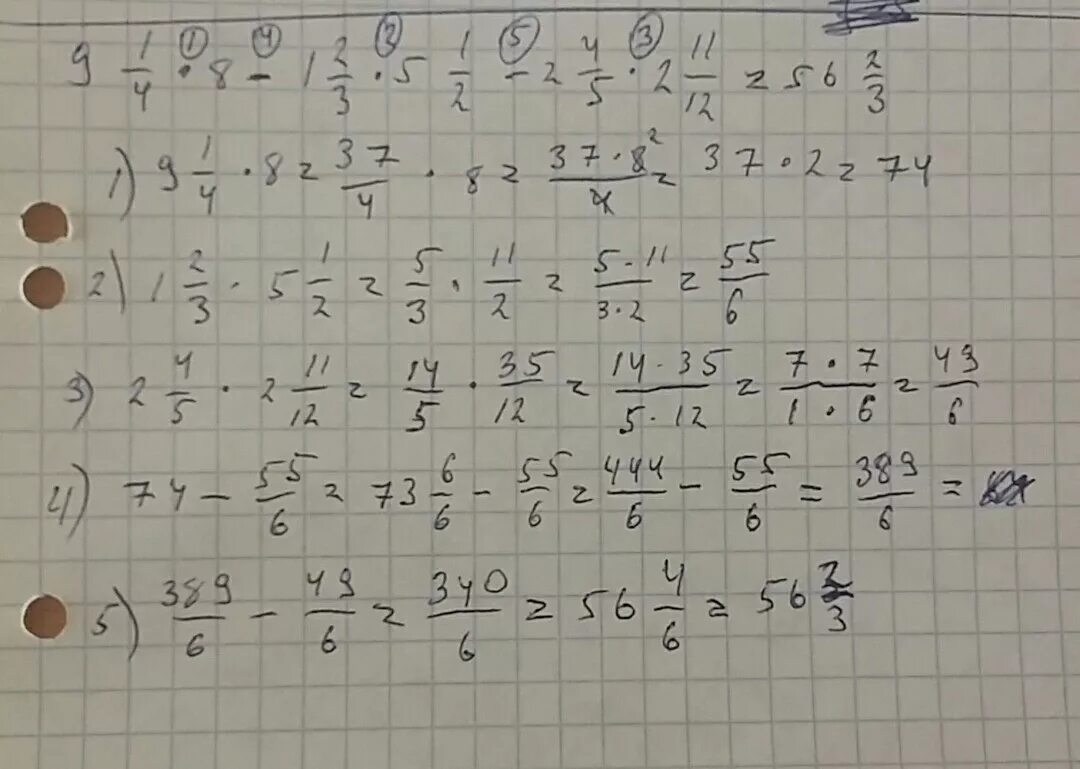 9 1/4 · 8 - 1 2/3 · 5 1/2 - 2 4/5 · 2 11/12 = 56 2/3
① ④ ② ⑤ ③
1) 9 1/4 · 8 = 37/4 · 8 = 37·8²/4 = 37·2 = 74
2) 1 2/3 · 5 1/2 = 5/3 · 11/2 = 5·11/3·2 = 55/6
3) 2 4/5 · 2 11/12 = 14/5 · 35/12 = 14·35/5·12 = 7·7/1·6 = 49/6
4) 74 - 55/6 = 73 6/6 - 55/6 = 444/6 - 55/6 = 389/6 =
5) 389/6 - 49/6 = 340/6 = 56 4/6 = 56 2/3